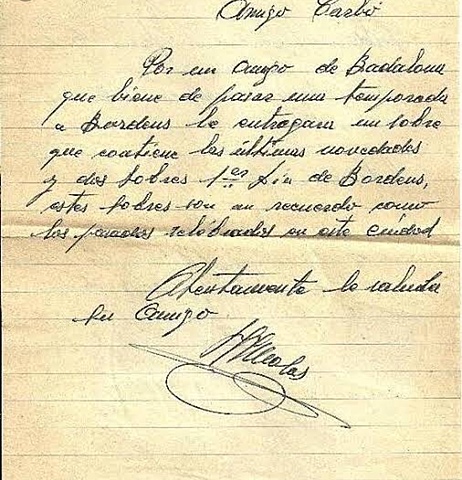 Amigo Carbó
Por un amigo de Badalona
que biene de pasar una temporada
a Bordeus le entregara un sobre
que contiene las últimas novedades
y dos sobres 1er día de Bordeus,
estes sobres son un recuerdo como
los pasados selobrados en este ciudad
Atentamente le saluda
su amigo